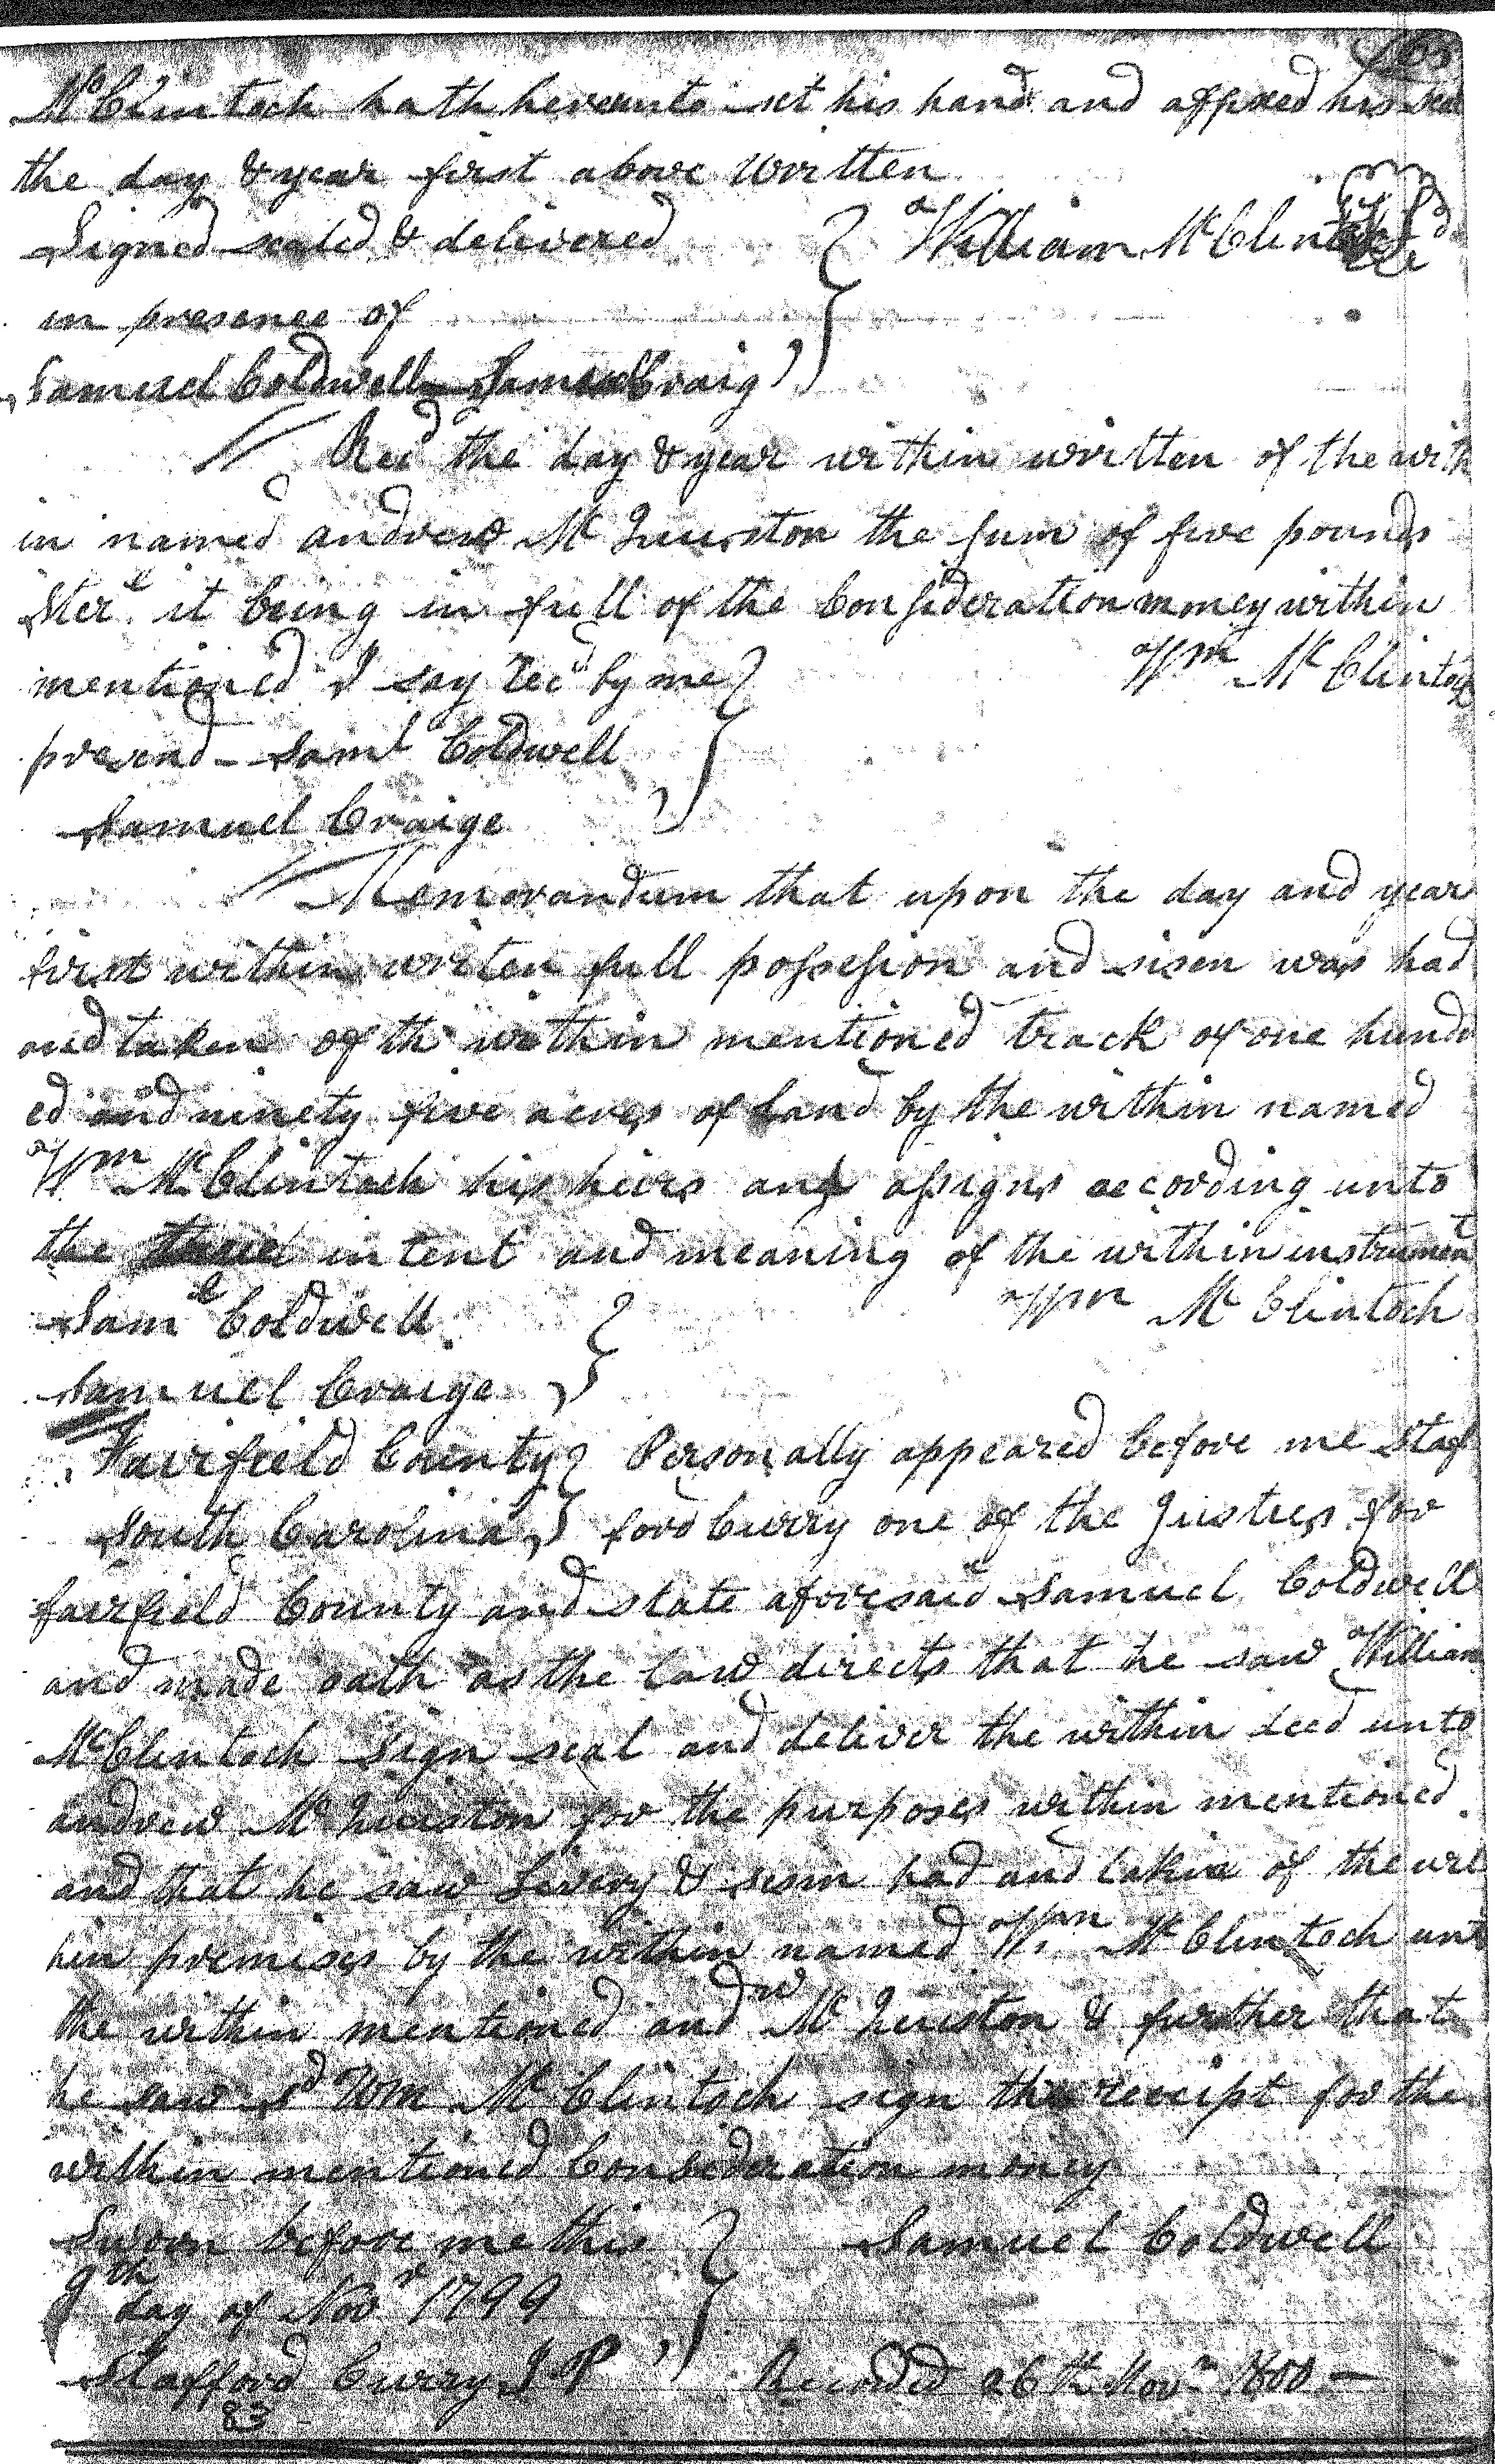 McClintoch hath hereunto set his hand and affixed his seal
the day & year first above written
Signed sealed & delivered } William McClintoch
in presence of
Samuel Coldwell Samuel Craig
Recd the day & year within written of the with
in named andrew Mc Quiston the sum of five pounds
Sterl it being in full of the Consideration money within
mentioned I say recd by me } Wm McClintoch
presend - Saml Coldwell
Samuel Craige
Memorandum that upon the day and year
first within writen full possession and sisen was had
and taken of th within mentioned track of one hundr
ed and ninety five acres of Land by the within named
Wm McClintoch his heirs and assigns according unto
the intent and meaning of the within instrument
Saml Coldwell } Wm McClintoch
Samuel Craige
Fairfield County } Personally appeared before me Staf
South Carolina } ford Curry one of the Justces for
fairfield County and state aforesaid Samuel Coldwell
and made oath as the law directs that he saw William
McClintoch sign seal and deliver the within deed unto
andrew McQuiston for the purposes within mentioned
and that he saw Livery & sisin had and taken of the wit
hin premises by the within named Wm McClintoch unto
the within mentioned andw McQuiston & further that
he saw sd Wm McClintoch sign the receipt for the
within mentioned Consideration money
Sworn before me this } Samuel Coldwell
9th day of Novr 1799
Stafford Curry J P Recorded 26th Novr 1800 —
83